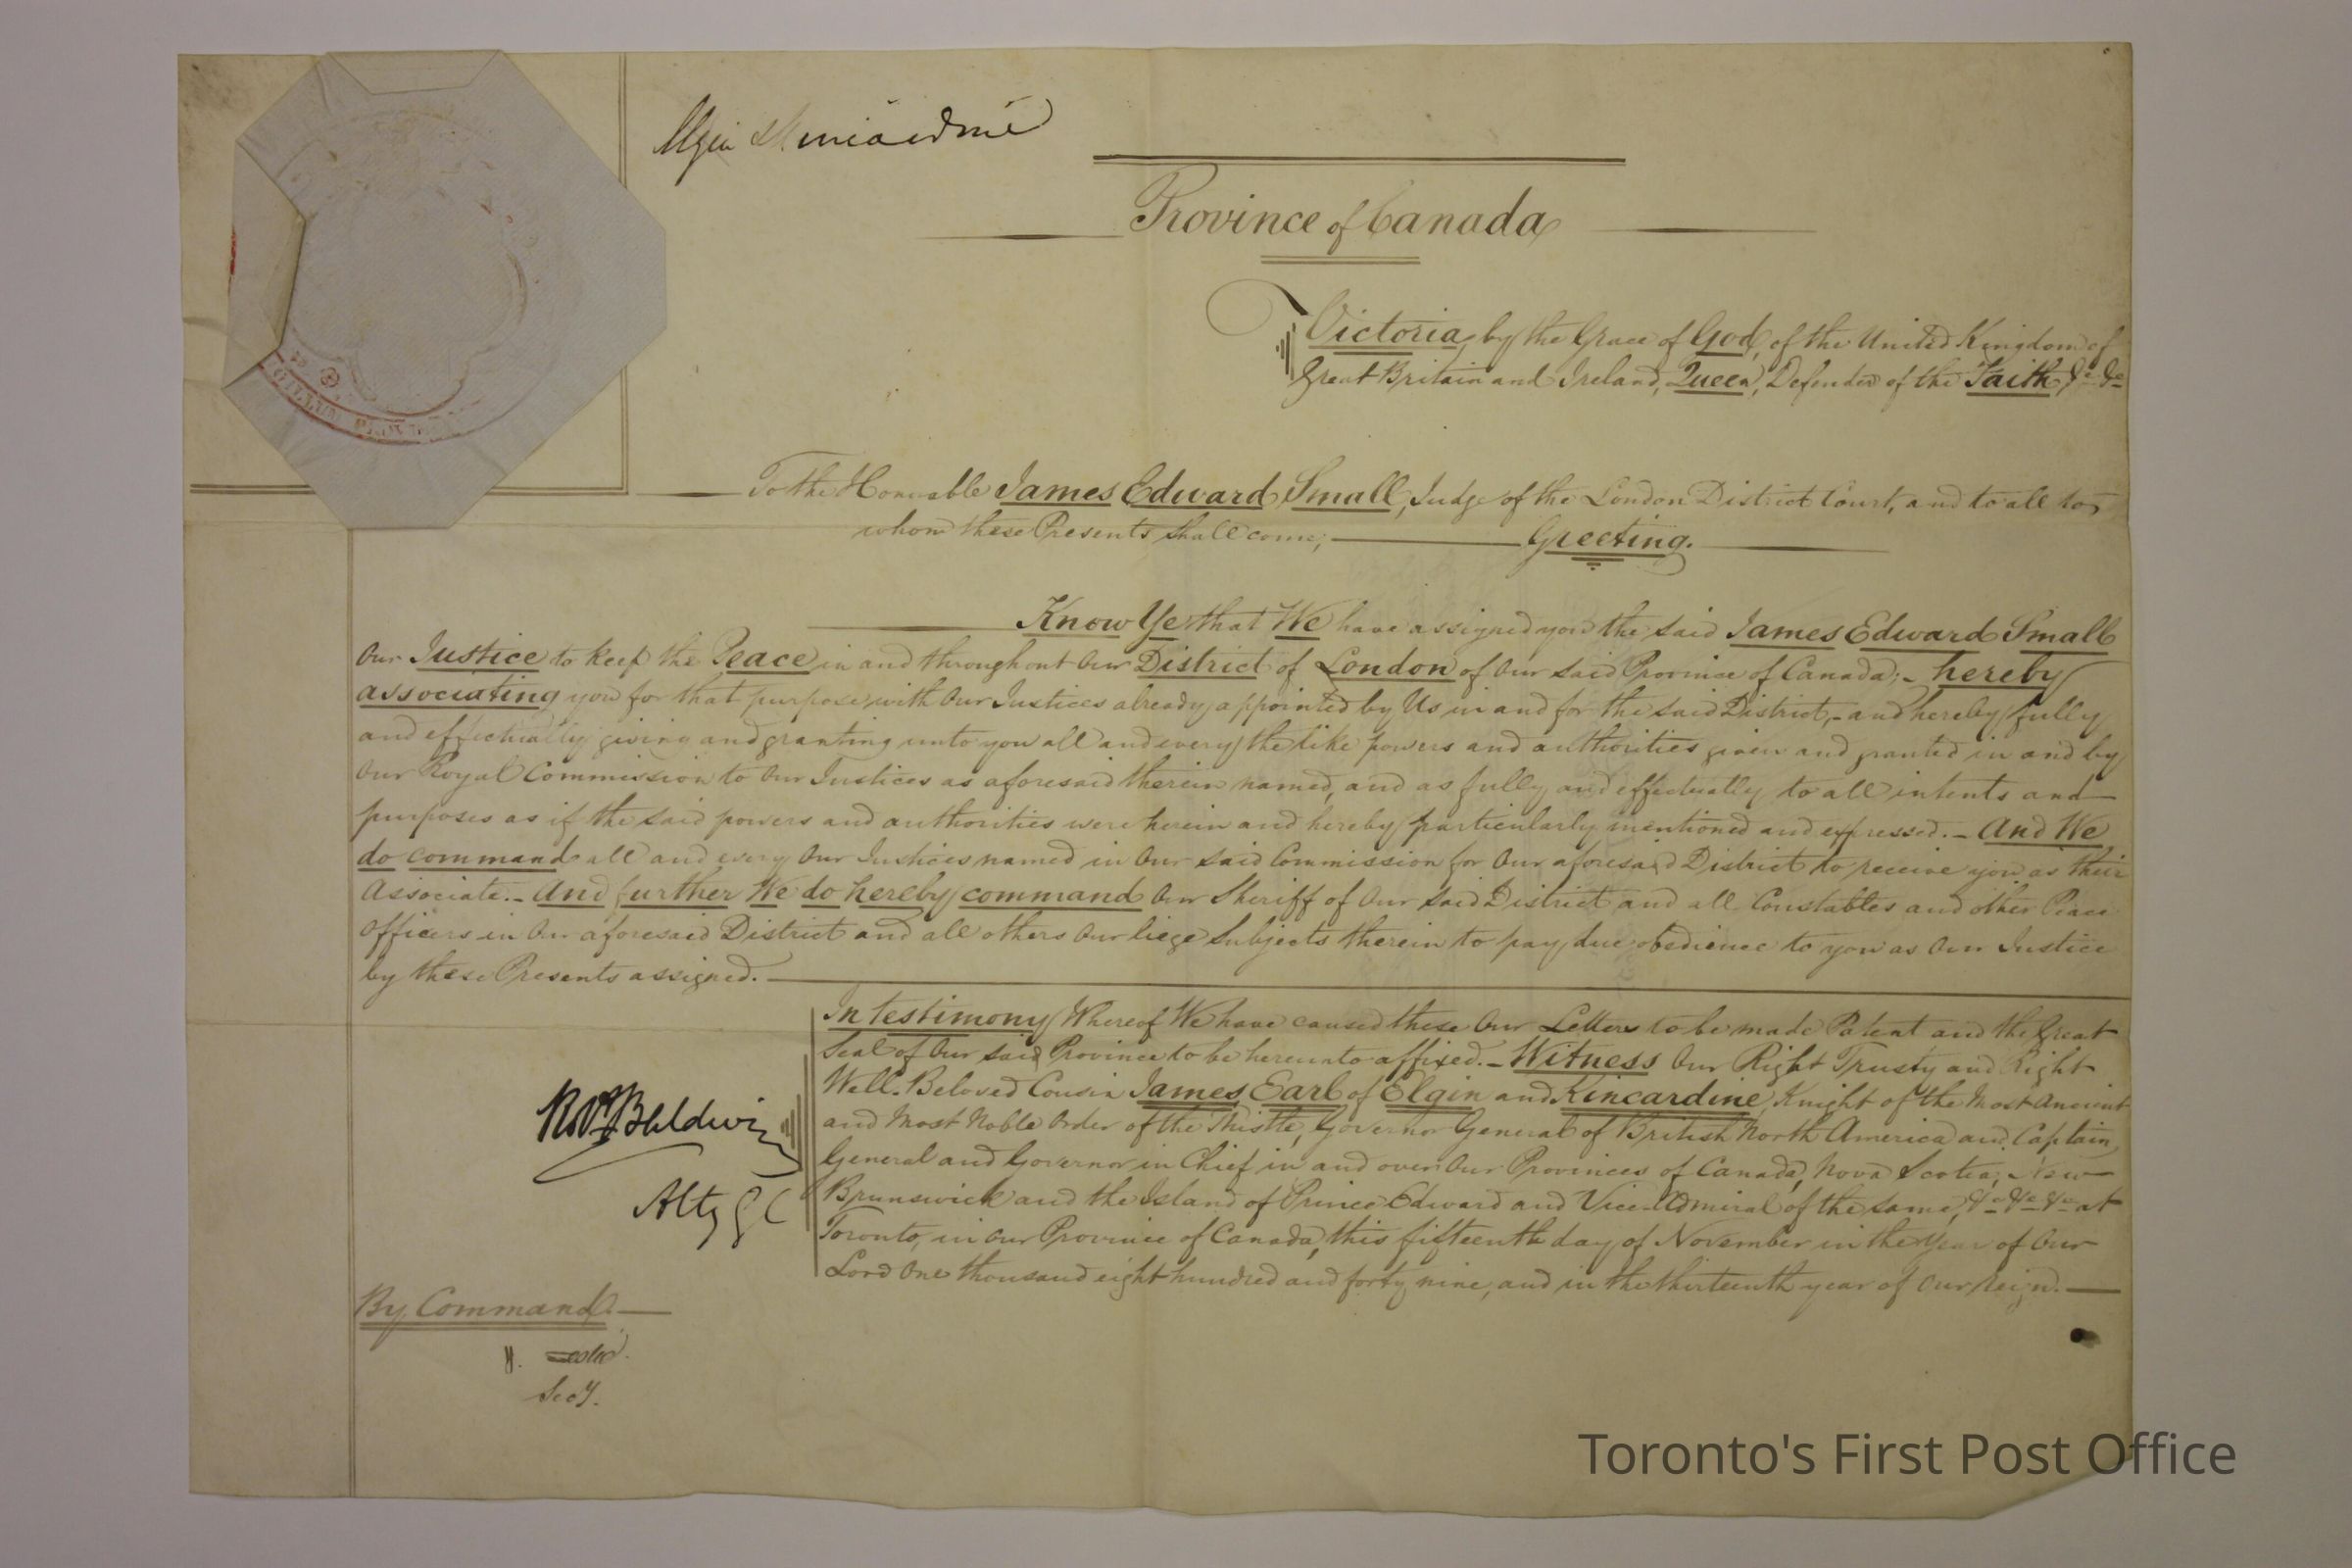 Elgin & Kincardine
Province of Canada
Victoria, by the Grace of God, of the United Kingdom of
Great Britain and Ireland, Queen, Defender of the Faith &c &c
To the Honorable James Edward Small, Judge of the London District Court, and to all to
whom these Presents shall come; Greeting.
Know Ye that We have assigned you the said James Edward Small
Our Justice to keep the Peace in and throughout Our District of London of Our said Province of Canada;- hereby
associating you for that purpose with Our Justices already appointed by Us in and for the said District,- and hereby fully
and effectually giving and granting unto you all and every the like powers and authorities given and granted in and by
Our Royal Commission to Our Justices as aforesaid therein named, and as fully and effectually to all intents and
purposes as if the said powers and authorities were herein and hereby particularly mentioned and expressed.- And We
do command all and every Our Justices named in Our said Commission for Our aforesaid District to receive you as their
Associate.- And further We do hereby command Our Sheriff of Our said District and all Constables and other Peace
Officers in Our aforesaid District and all others Our liege Subjects therein to pay due obedience to you as Our Justice
by these Presents assigned.
In testimony Whereof We have caused these Our Letters to be made Patent and the Great
Seal of Our said Province to be hereunto affixed.- Witness Our Right Trusty and Right
Well-Beloved Cousin James, Earl of Elgin and Kincardine, Knight of the Most Ancient
and Most Noble Order of the Thistle, Governor General of British North America and Captain
General and Governor in Chief in and over Our Provinces of Canada, Nova Scotia, New
Brunswick and the Island of Prince Edward and Vice-Admiral of the same, &c &c &c at
Toronto, in Our Province of Canada, this fifteenth day of November in the Year of Our
Lord One thousand eight hundred and forty nine, and in the thirteenth year of Our Reign.
Robt Baldwin
Atty G
By Command.
Secy.
Toronto's First Post Office